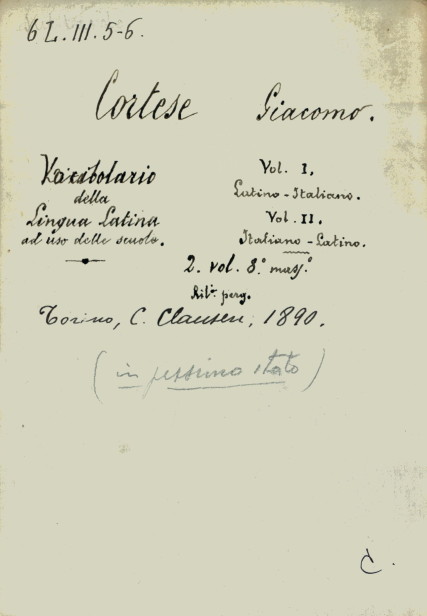 6 L. III. 5-6.
Cortese Giacomo.
Vocabolario
della
Lingua Latina
ad uso delle scuole.
Vol. I,
Latino-Italiano.
Vol. II.
Italiano-Latino.
2. vol. 8.º mass.º
Ril. perg.
Torino, C. Clausen, 1890.
(in pessimo stato)
C.